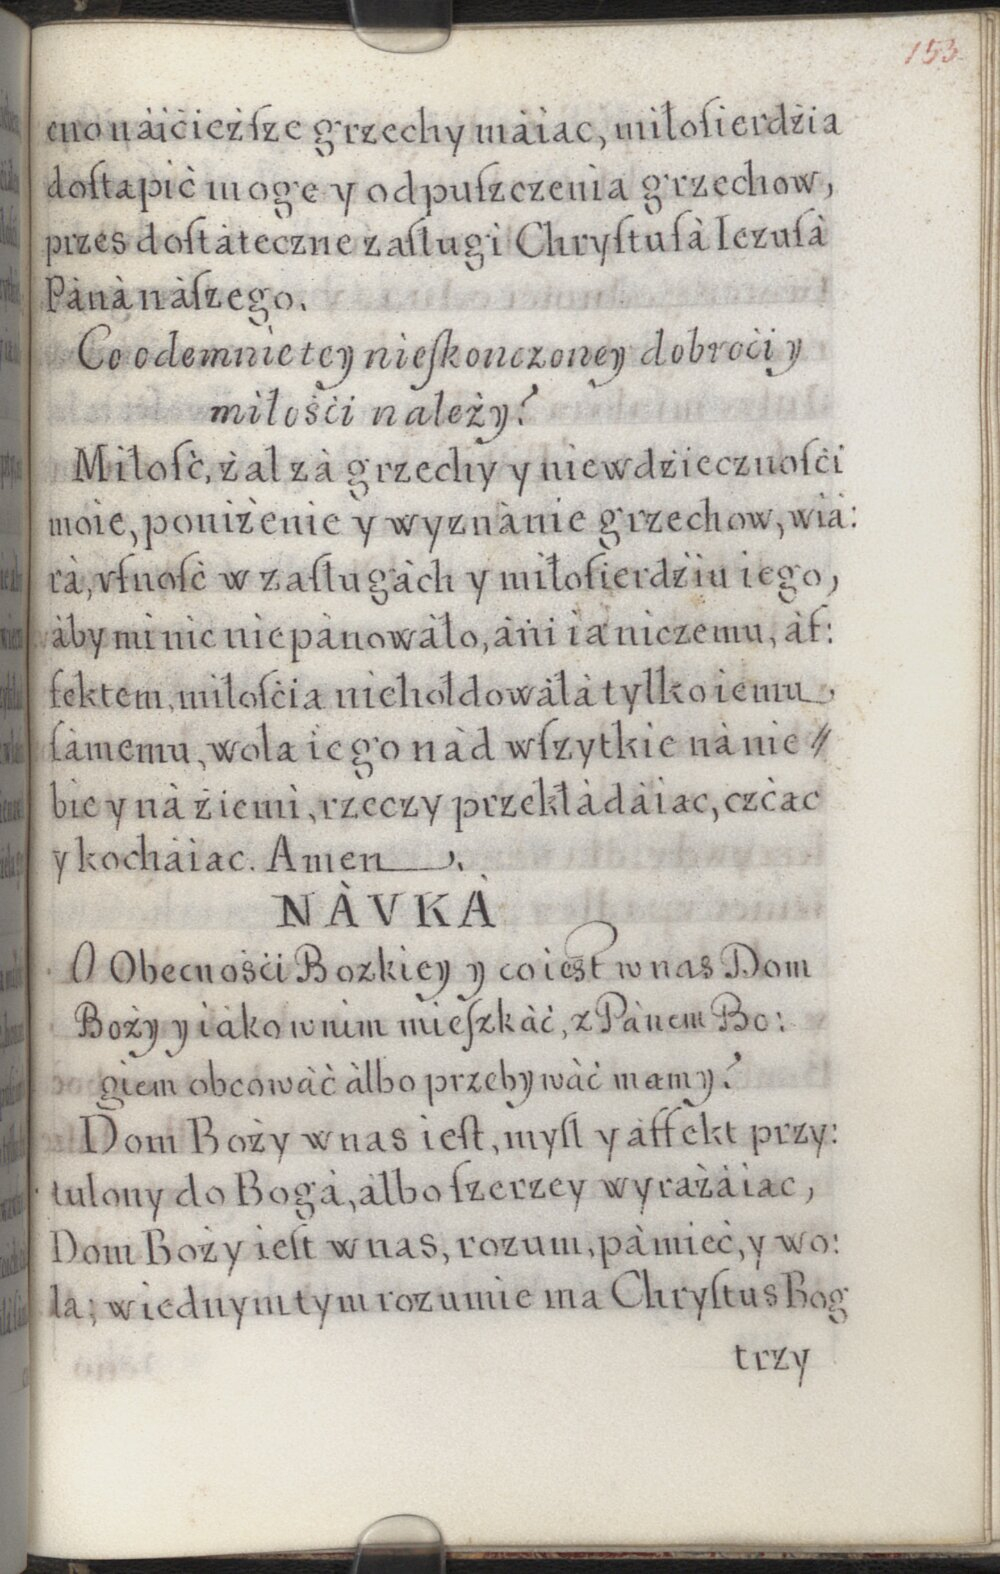 153
eno náicieżſze grzechy máiac, miłoſierdżia
doſtapić moge y odpuſzczenia grzechow,
przes doſtateczne zaſługi Chryſtuſà Iezuſà
Pànà nàſzego.
Co odemnie tey nieſkonczoney dobroći y
miłośći należy?
Miłoſć, żal zà grzechy y niewdżiecznoſći
moie, poniżenie y wyznànie grzechow, wià:
rà, vfnoſć w zaſługàch y miłoſierdżiu iego,
àby mi nic nie pànowàło, àni ia niczemu, àf:
fektem, miłoſćia niehołdowàłà tylko iemu,
ſàmemu, wola iego nàd wſzytkie nà nie //
bie y nà żiemi, rzeczy przekłàdàiac, czćac
y kochàiac. Amen.
NÀVKÀ
O Obecnośći Bozkiey y co iest w nas Dom
Boży y iàko w nim mieſzkàć, z Pànem Bo:
giem obcowàć àlbo przebywàć mamy?
Dom Boży w nas ieſt, myſl y àffekt przy:
tulony do Bogà, àlbo ſzerzey wyràżàiac,
Dom Boży ieſt w nas, rozum, pàmieć, y wo:
la; w iednym tym rozumie ma Chryſtus Bog
trzy